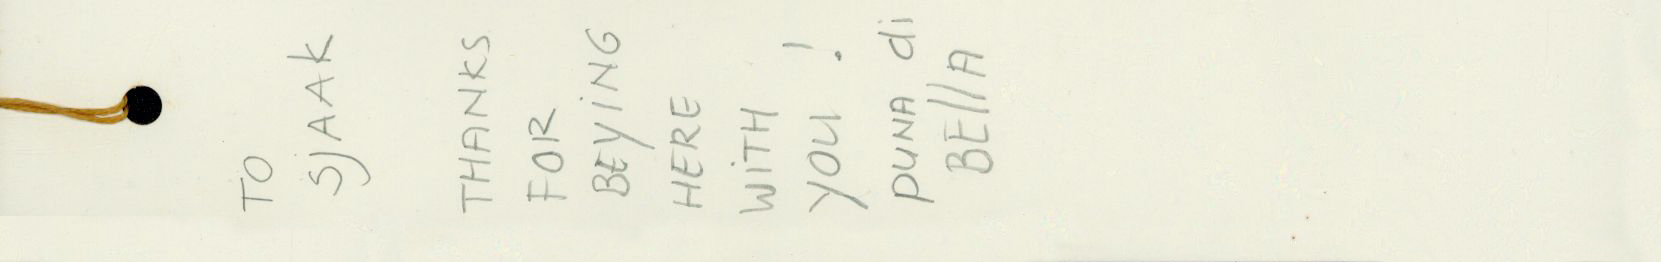 TO
SJAAK
THANKS
FOR
BEYiNG
HERE
WiTH
YOU !
PUNA di
BEllA